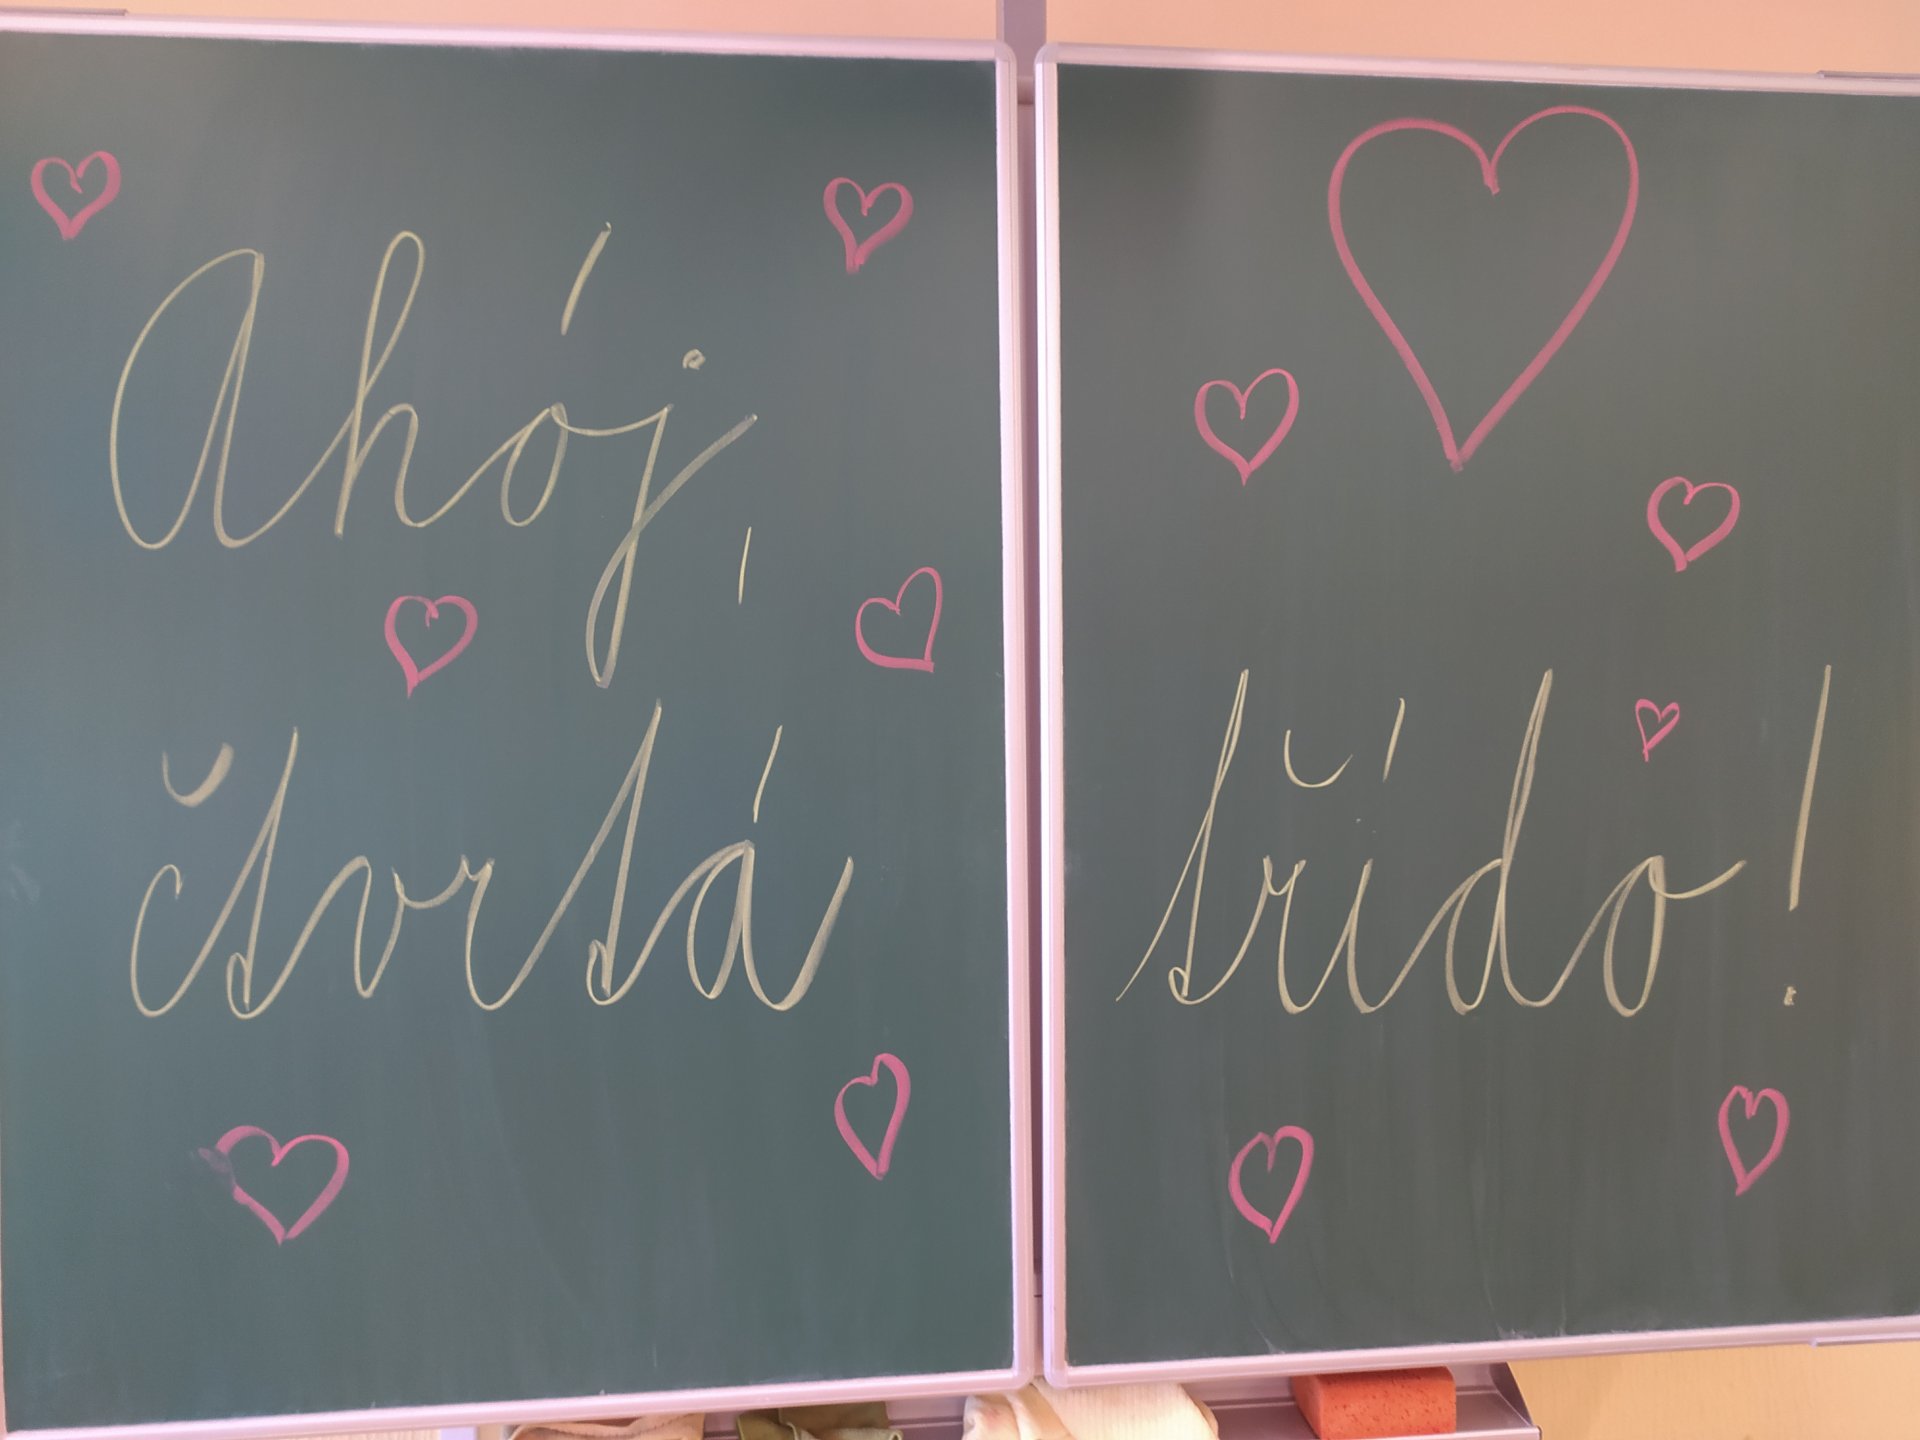 Ahój,
čtvrtá třído!